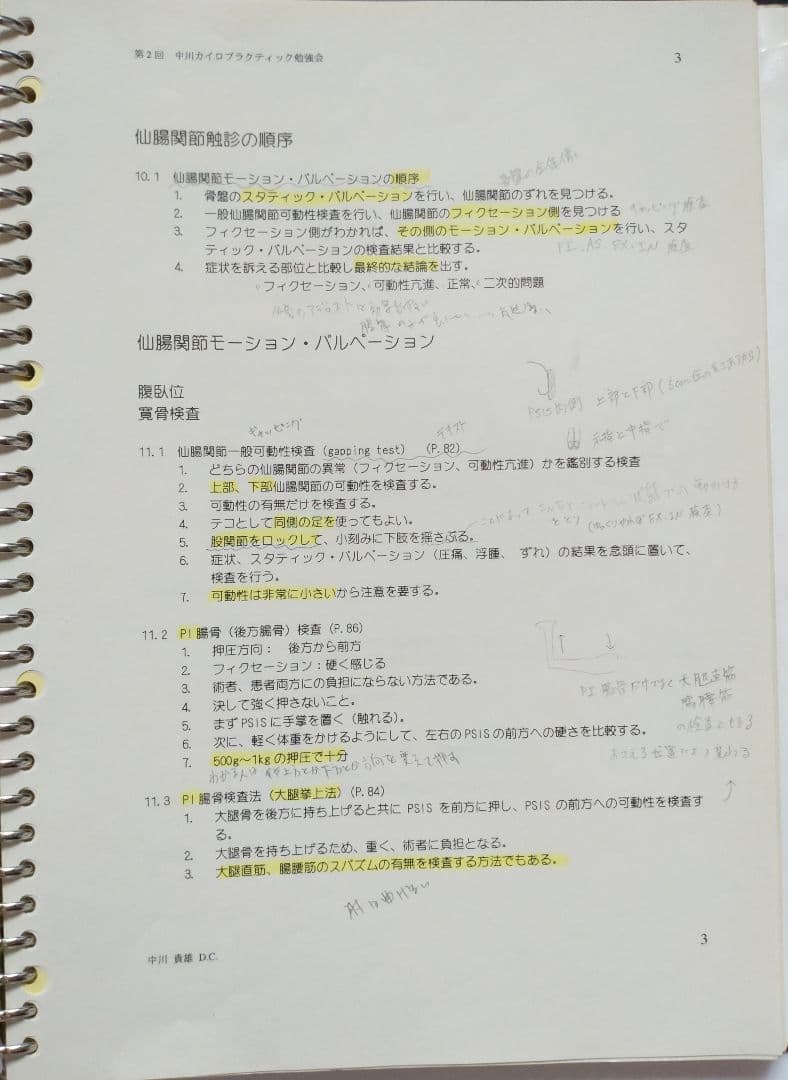 第2回 中川カイロプラクティック勉強会
3
仙腸関節触診の順序
10.1 仙腸関節モーション・パルペーションの順序
1. 骨盤のスタティック・パルペーションを行い、仙腸関節のずれを見つける。
2. 一般仙腸関節可動性検査を行い、仙腸関節のフィクセーション側を見つける
3. フィクセーション側がわかれば、その側のモーション・パルペーションを行い、スタ
ティック・パルペーションの検査結果と比較する。
PI. AS. EX. IN 検査
4. 症状を訴える部位と比較し最終的な結論を出す。
フィクセーション、可動性亢進、正常、二次的問題
仙腸関節モーション・パルペーション
腹臥位
寛骨検査
PSIS内側 上部と下部
示指と中指で
ギャッピング
テキスト
11.1 仙腸関節一般可動性検査 (gapping test) (P.82)
1. どちらの仙腸関節の異常（フィクセーション、可動性亢進）かを鑑別する検査
2. 上部、下部仙腸関節の可動性を検査する。
3. 可動性の有無だけを検査する。
4. テコとして同側の足を使ってもよい。
5. 股関節をロックして、小刻みに下肢を揺さぶる。
6. 症状、スタティック・パルペーション（圧痛、浮腫、 ずれ）の結果を念頭に置いて、
検査を行う。
7. 可動性は非常に小さいから注意を要する。
11.2 PI腸骨（後方腸骨）検査 (P.86)
1. 押圧方向： 後方から前方
2. フィクセーション：硬く感じる
3. 術者、患者両方にの負担にならない方法である。
4. 決して強く押さないこと。
5. まずPSISに手掌を置く（触れる）。
6. 次に、軽く体重をかけるようにして、左右のPSISの前方への硬さを比較する。
7. 500g～1kgの押圧で十分
PI 腸骨だけでなく 大腿直筋
腸腰筋
の検査にもなる
11.3 PI腸骨検査法（大腿挙上法）(P.84)
1. 大腿骨を後方に持ち上げると共に PSIS を前方に押し、PSIS の前方への可動性を検査す
る。
2. 大腿骨を持ち上げるため、重く、術者に負担となる。
3. 大腿直筋、腸腰筋のスパズムの有無を検査する方法でもある。
肘は曲げない
中川 貴雄 D.C.
3